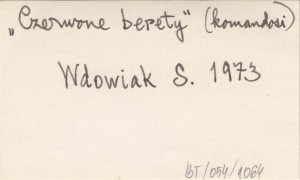 „Czerwone berety" (komandosi)
Wdowiak S. 1973
BT/054/1064